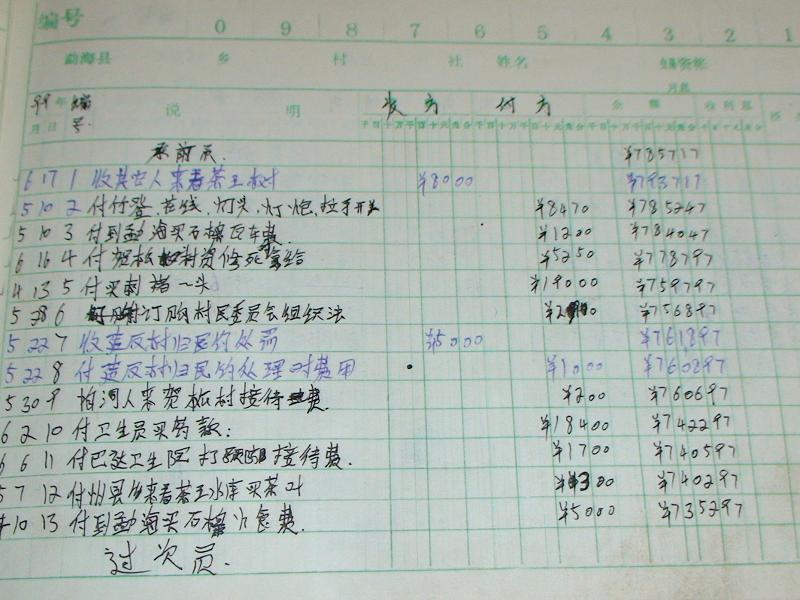 编号 0 9 8 7 6 5 4 3 2 1
勐海县 乡 村 社 姓名
月息
99年 编 说明 收方 付方 金额 收利息
月 日 号
承前页. ¥785717
6 17 1 收其它人来看茶王树 ¥8000 ¥793717
5 10 2 付竹登, 花线, 灯头, 灯炮, 拉手开关 ¥8470 ¥785247
5 10 3 付到勐海买石棉瓦车费. ¥1200 ¥784047
6 16 4 付贺松村贷修 ¥5250 ¥778797
4 13 5 付买 猪一头 ¥19000 ¥759797
5 28 6 订购村民委员会组织法 ¥756897
5 22 7 收违反村归民约处罚 ¥5000 ¥761897
5 22 8 付违反村归民约处理时费用 ¥1000 ¥760897
5 30 9 柏河人来贺松村接待费. ¥200 ¥760697
6 2 10 付卫生员买药款. ¥18400 ¥742297
6 6 11 付巴达卫生院打 接待费. ¥1700 ¥740597
5 7 12 付州县乡来看茶王水库买茶叶 ¥300 ¥740297
10 13 付到勐海买石棉 食费. ¥5000 ¥735297
过次页.